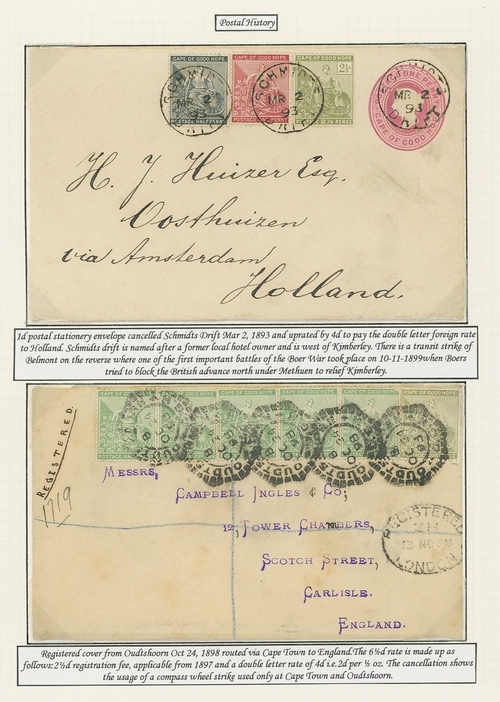 Postal History
CAPE OF GOOD HOPE
POSTAGE HALFPENNY
CAPE OF GOOD HOPE
PENNY
CAPE OF GOOD HOPE
2½
PENCE
SCHMIDTS
MR 2
93
DRIFT
SCHMIDTS
MR 2
93
DRIFT
ONE PENNY
CAPE OF GOOD HOPE
MR 2
93
DRIFT
H. J. Huizer Esq.
Oosthuizen
via Amsterdam
Holland.
1d postal stationery envelope cancelled Schmidts Drift Mar 2, 1893 and uprated by 4d to pay the double letter foreign rate
to Holland. Schmidts drift is named after a former local hotel owner and is west of Kimberley. There is a transit strike of
Belmont on the reverse where one of the first important battles of the Boer War took place on 10-11-1899when Boers
tried to block the British advance north under Methuen to relief Kimberley.
CAPE OF GOOD HOPE
OUDTS
REGISTERED.
1719
MESSRS,
CAMPBELL INGLES & CO;
12, TOWER CHAMBERS,
SCOTCH STREET,
CARLISLE.
ENGLAND.
REGISTERED
13 NO 98
LONDON
Registered cover from Oudtshoorn Oct 24, 1898 routed via Cape Town to England.The 6½d rate is made up as
follows:2½d registration fee, applicable from 1897 and a double letter rate of 4d i.e.2d per ½ oz. The cancellation shows
the usage of a compass wheel strike used only at Cape Town and Oudtshoorn.